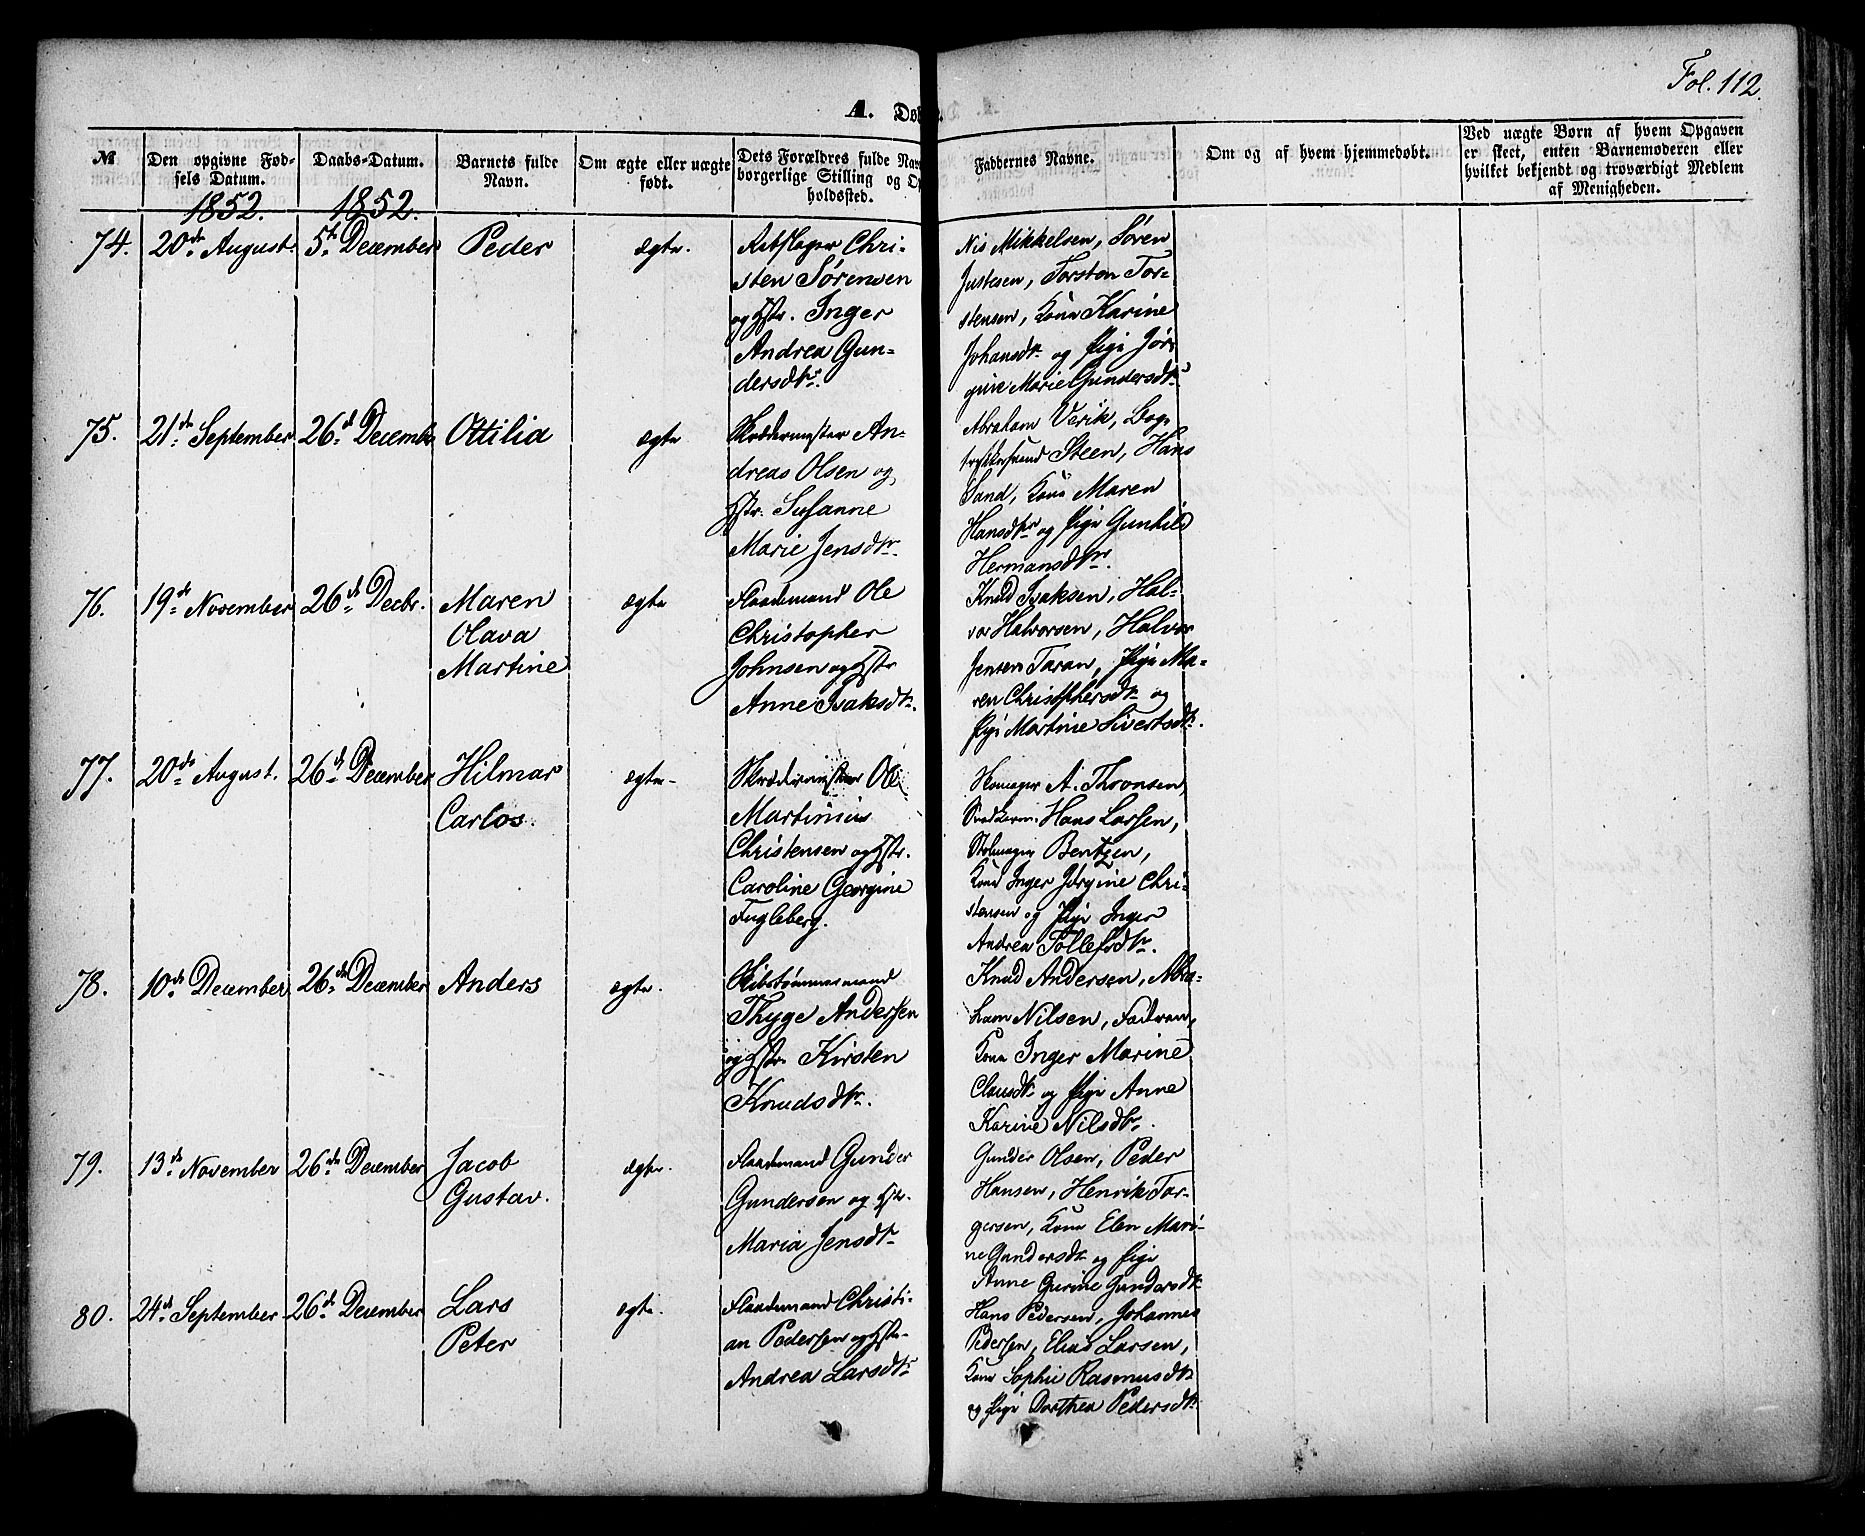 Fol. 112.
A. Døbte.
№
Den opgivne Fød-
sels Datum.
1852.
Daabs-Datum.
1852.
Barnets fulde
Navn.
Om ægte eller uægte
født.
Dets Forældres fulde Nav
borgerlige Stilling og Op
holdssted.
Faddernes Navne.
Om og af hvem hjemmedøbt.
Ved uægte Børn af hvem Opgaven
er skeet, enten Barnemoderen eller
hvilket bekjendt og troværdigt Medlem
af Menigheden.
74.
20de August.
5te December
Peder
ægte.
Rebslager Chri-
sten Sørensen
og Hstr. Inger
Andrea Gun-
dersdtr.
Nis Mikkelsen, Søren
Justesen, Torsten Tor-
stensen, Kone Karine
Johansdtr og Pige Jør
gine Marie Gundersdtr
75.
21de September
26de Decembr
Ottilia
ægte
Skrædermester An-
dreas Olsen og
Hstr. Susanne
Marie Jensdtr.
Abraham Verik, Bog-
Steen, Hans
Sand, Kone Maren
Hansdtr og Pige Gunhild
Hermansdtr.
76.
19de November
26de Decbr.
Maren
Olava
Martine
ægte
Flaademand Ole
Christopher
Johnsen og Hstr
Anne Isaksdtr.
Knud Isaksen, Hal-
vor Halvorsen, Halvor
Jensen Taran, Pige Ma-
ren Christophersdtr og
Pige Martine Sivertsdtr.
77.
20de August.
26de December
Hilmar
Carlos.
ægte
Skrædermester Ole
Martinius
Christensen og Hstr.
Caroline Georgine
Fugleberg.
Skomager A. Thronsen,
Hans Larsen,
Stolmager Bentzen,
Kone Inger Jørgine Chri-
stensen og Pige Inger
Andrea Tollefsdtr.
78.
10de December
26de December
Anders
ægte.
Skibstømmermand
Thyge Andersen
og Hstr. Kirsten
Knudsdtr.
Knud Andersen, Abra-
ham Nilsen, Faderen,
Kone Inger Marine
Clausdtr og Pige Anne
Karine Nilsdtr.
79.
13de November
26de December
Jacob
Gustav.
ægte.
Flaademand Gunder
Gundersen og Hstr.
Maria Jensdtr
Gunder Olsen, Peder
Hansen, Henrik Tor-
gersen, Kone Elen Mari-
ne Gundersdtr og Pige
Anne Gurine Gundersdtr
80.
24de September
26de December
Lars
Peter
ægte.
Flaademand Christi-
an Pedersen og Hstr.
Andrea Larsdtr
Hans Pedersen, Johannes
Pedersen, Elias Larsen,
Kone Sophie Rasmusdtr
og Pige Dorthea Pedersdtr.